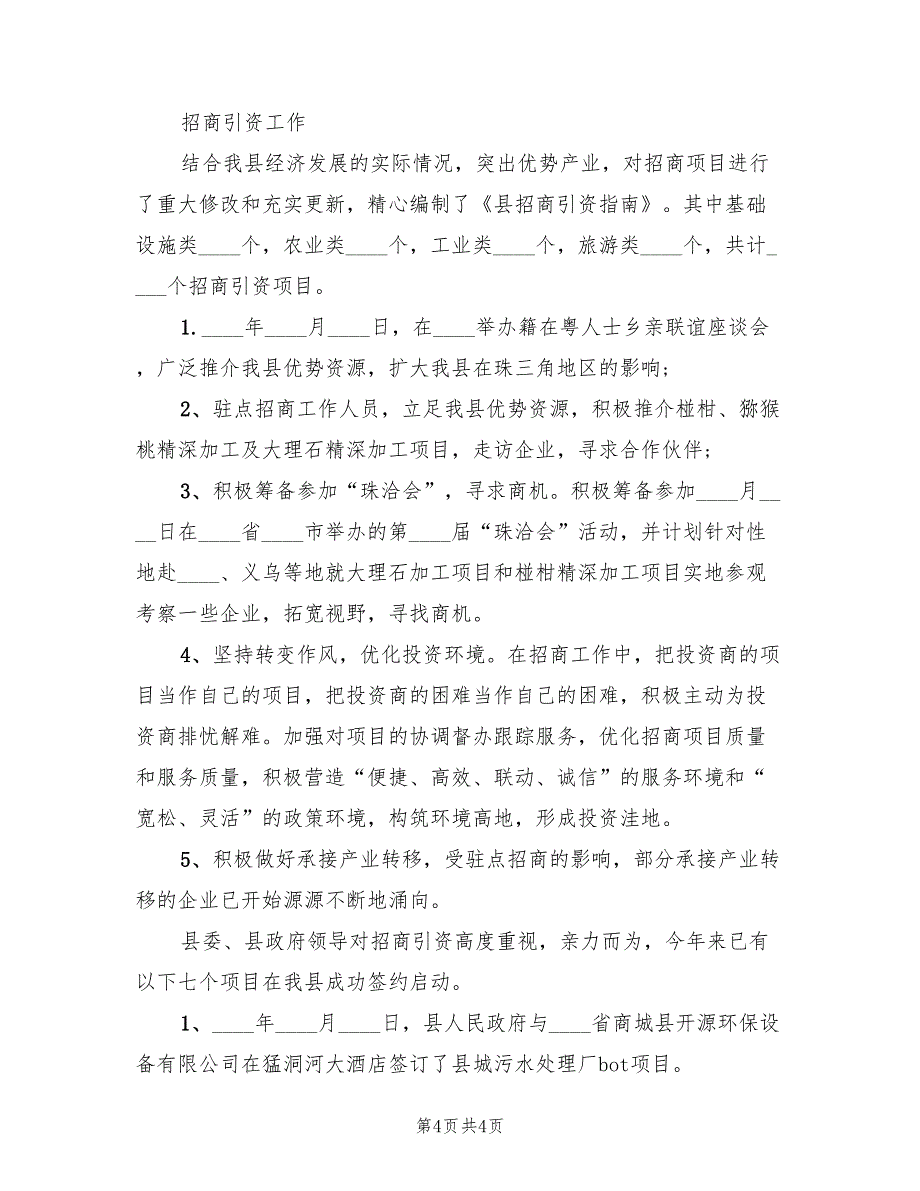 招商引资工作
结合我县经济发展的实际情况，突出优势产业，对招商项目进行
了重大修改和充实更新，精心编制了《县招商引资指南》。其中基础
设施类____个，农业类____个，工业类____个，旅游类____个，共计_
___个招商引资项目。
1.____年____月____日，在____举办籍在粤人士乡亲联谊座谈会
，广泛推介我县优势资源，扩大我县在珠三角地区的影响;
2、驻点招商工作人员，立足我县优势资源，积极推介椪柑、猕猴
桃精深加工及大理石精深加工项目，走访企业，寻求合作伙伴;
3、积极筹备参加“珠洽会”，寻求商机。积极筹备参加____月__
__日在____省____市举办的第____届“珠洽会”活动，并计划针对性
地赴____、义乌等地就大理石加工项目和椪柑精深加工项目实地参观
考察一些企业，拓宽视野，寻找商机。
4、坚持转变作风，优化投资环境。在招商工作中，把投资商的项
目当作自己的项目，把投资商的困难当作自己的困难，积极主动为投
资商排忧解难。加强对项目的协调督办跟踪服务，优化招商项目质量
和服务质量，积极营造“便捷、高效、联动、诚信”的服务环境和“
宽松、灵活”的政策环境，构筑环境高地，形成投资洼地。
5、积极做好承接产业转移，受驻点招商的影响，部分承接产业转
移的企业已开始源源不断地涌向。
县委、县政府领导对招商引资高度重视，亲力而为，今年来已有
以下七个项目在我县成功签约启动。
1、____年____月____日，县人民政府与____省商城县开源环保设
备有限公司在猛洞河大酒店签订了县城污水处理厂bot项目。
第4页共4页